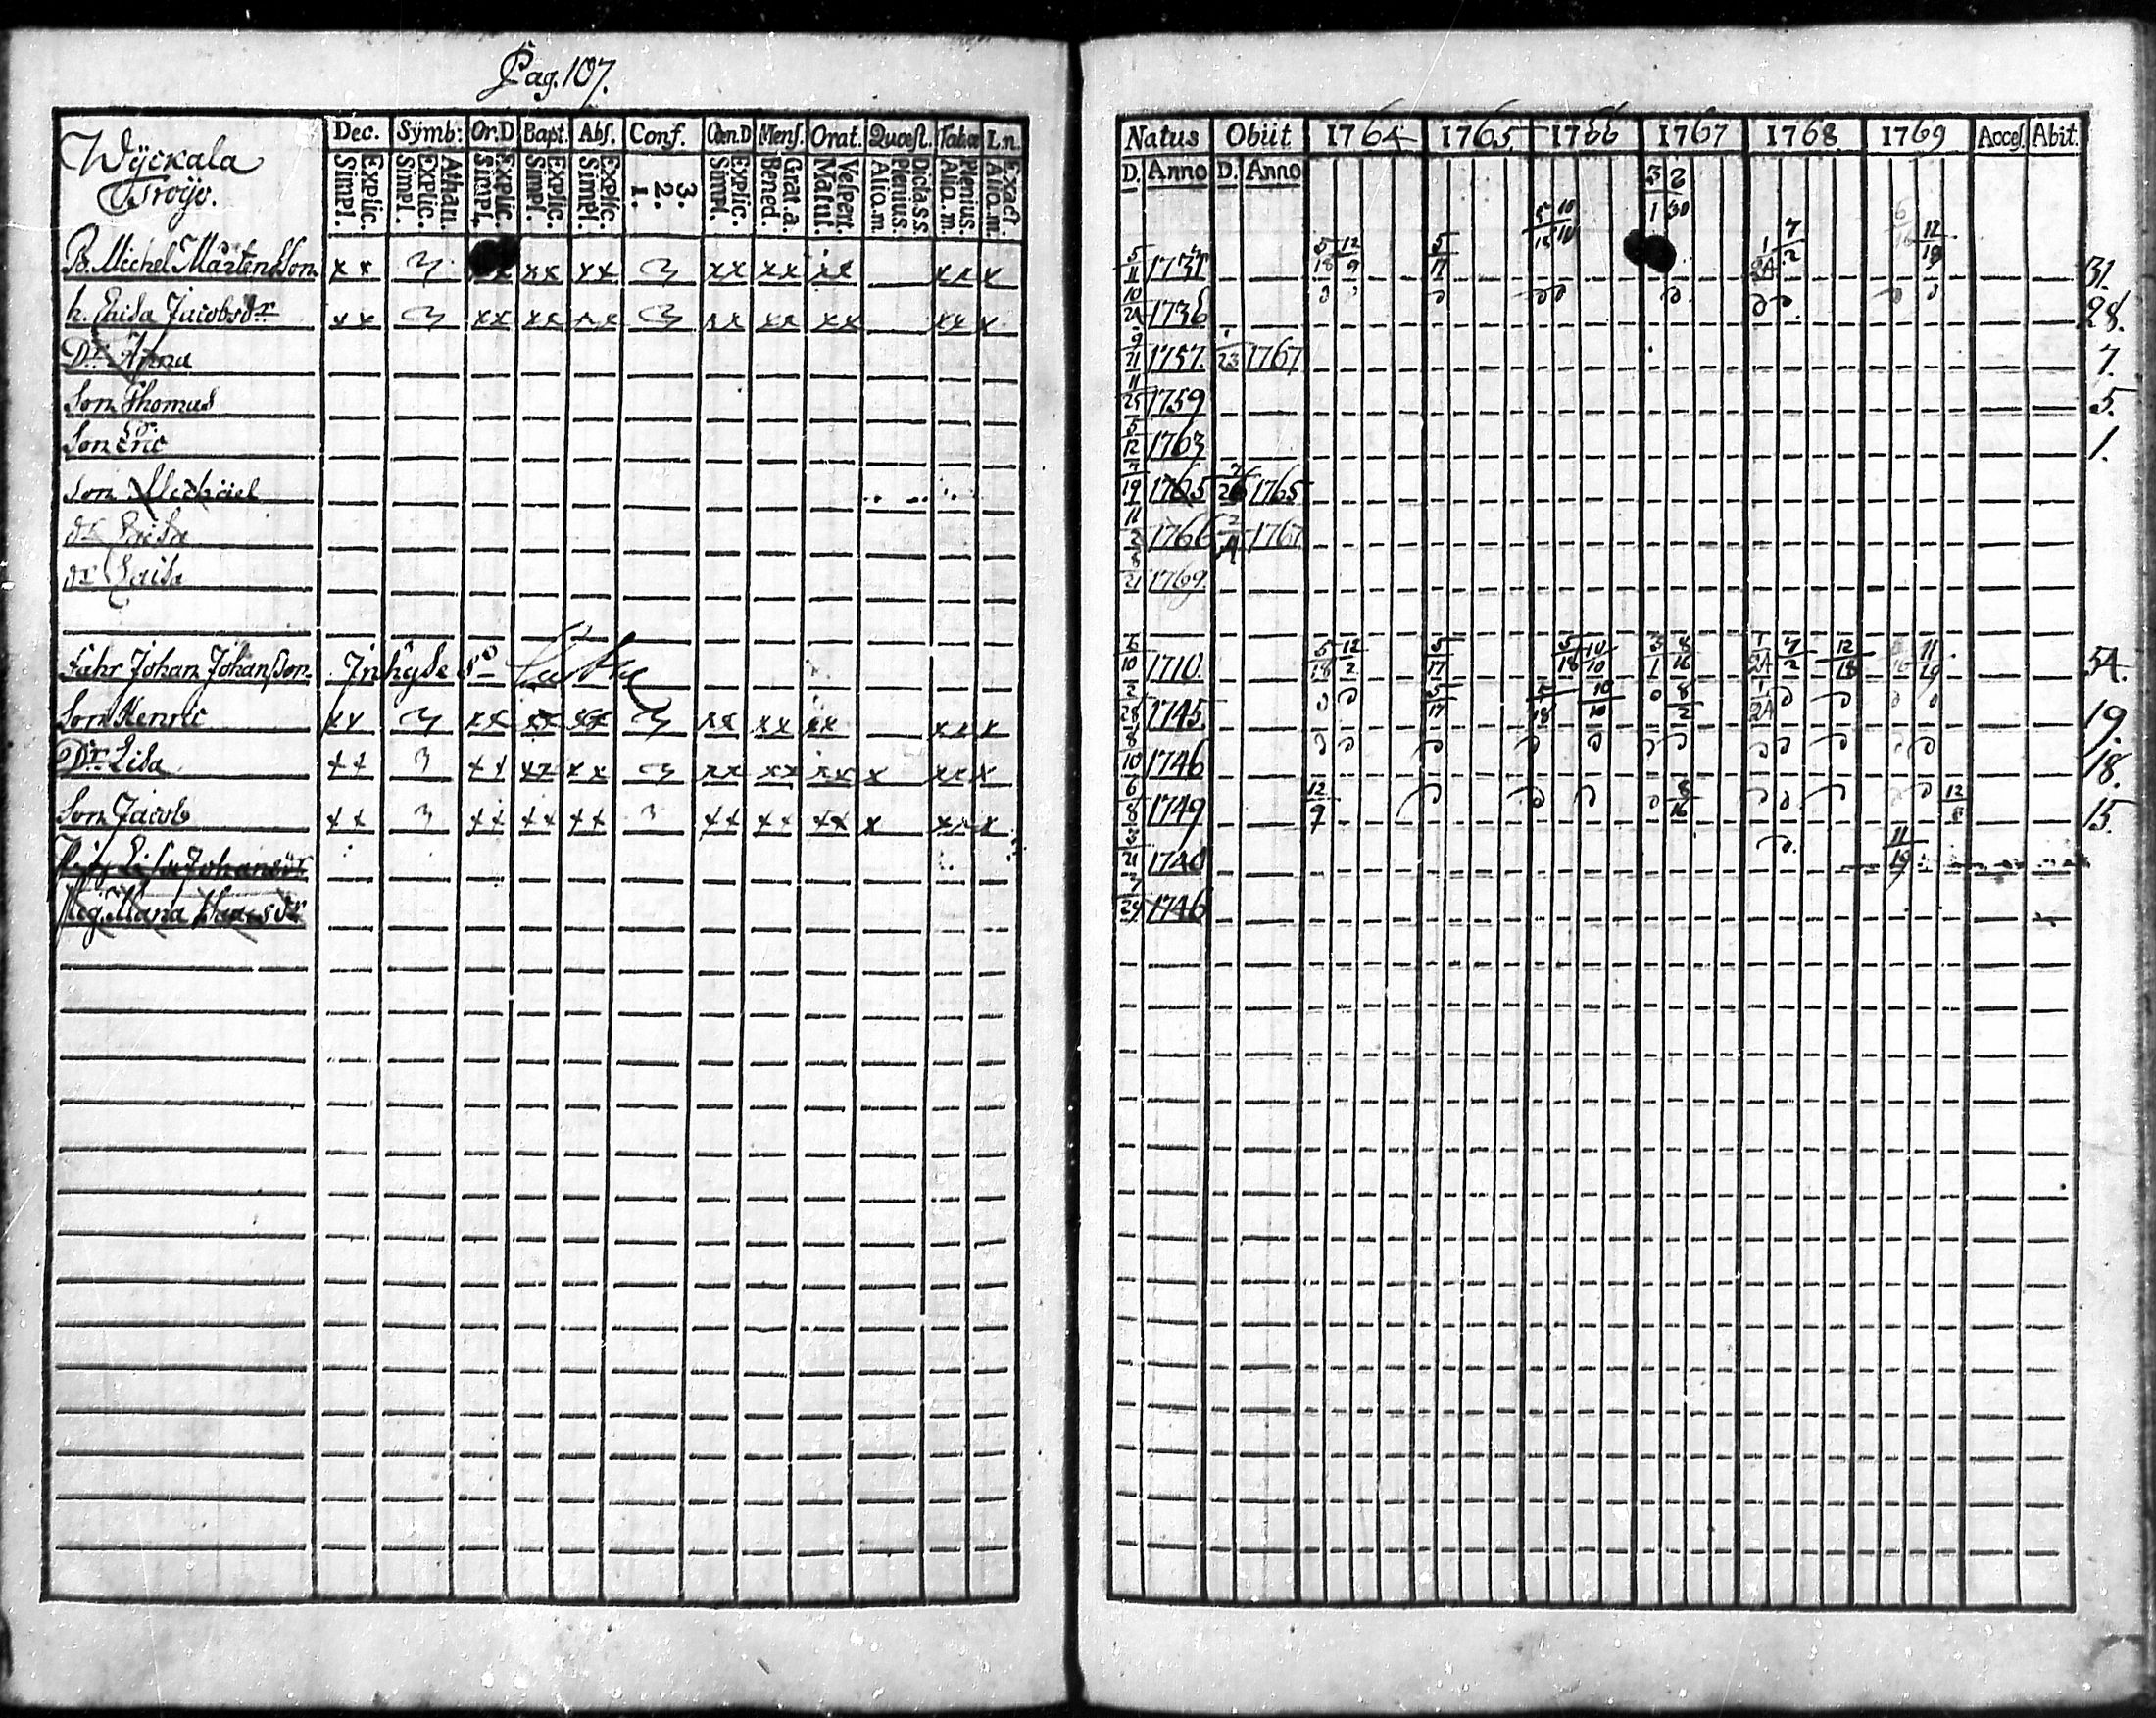 Pag. 107.
Wÿckala
Troijo.
Dec. Sÿmb: Or.D Bapt. Abs. Conf. Cœn.D Mens. Orat. Quæst. Tabæ L.n.
Explic. Simpl. Athan. Explic. Simpl. Explic. Simpl. Explic. Simpl. Explic. Simpl. 3. 2. 1. Explic. Simpl. Grat.a. Bened. Vespert. Matut. Dicta S.S. Plenius. Aliq.m. Plenius. Aliq.m. Exact. Aliq.m.
B. Michel Mårtensson x x 3 x x x x x 3 x x x x x x x x x x
h. Lisa Jacobsdr x x 3 x x x x x x 3 x x x x x x x x x
Dr. Anna
Son Thomas
Son Eric
Son Michael
dr Lisa
dr Caisa
Fahr Johan Johansson Inhyse
Son Henric x x 3 x x x x x x 3 x x x x x x x x x
Dr. Lisa x x 3 x x x x x x 3 x x x x x x x x x x
Son Jacob x x 3 x x x x x x 3 x x x x x x x x x x
Pig. Lisa Johansdr
Leg. Maria
Natus Obiit 1764 1765 1766 1767 1768 1769 Acces. Abit.
D. Anno D. Anno
3/1 8/30
5/11 1731 5/18 12/9 5/17 5/18 10/10 1/24 7/2 12/19 31.
10/24 1736 28.
9/21 1757. 1/23 1767 7.
11/25 1759 5.
5/12 1763 1.
7/19 1765 7/26 1765
11/2 1766 2/4 1767
8/21 1769.
5/10 1710. 5/18 12/2 5/17 5/18 10/10 3/1 8/16 1/24 7/2 12/18 11/19 54.
2/28 1745. 5/17 5/18 10/10 8/2 1/24 19.
8/10 1746 18.
6/8 1749 12/9 8/16 12/8 15.
2/21 1740 11/19
7/29 1746